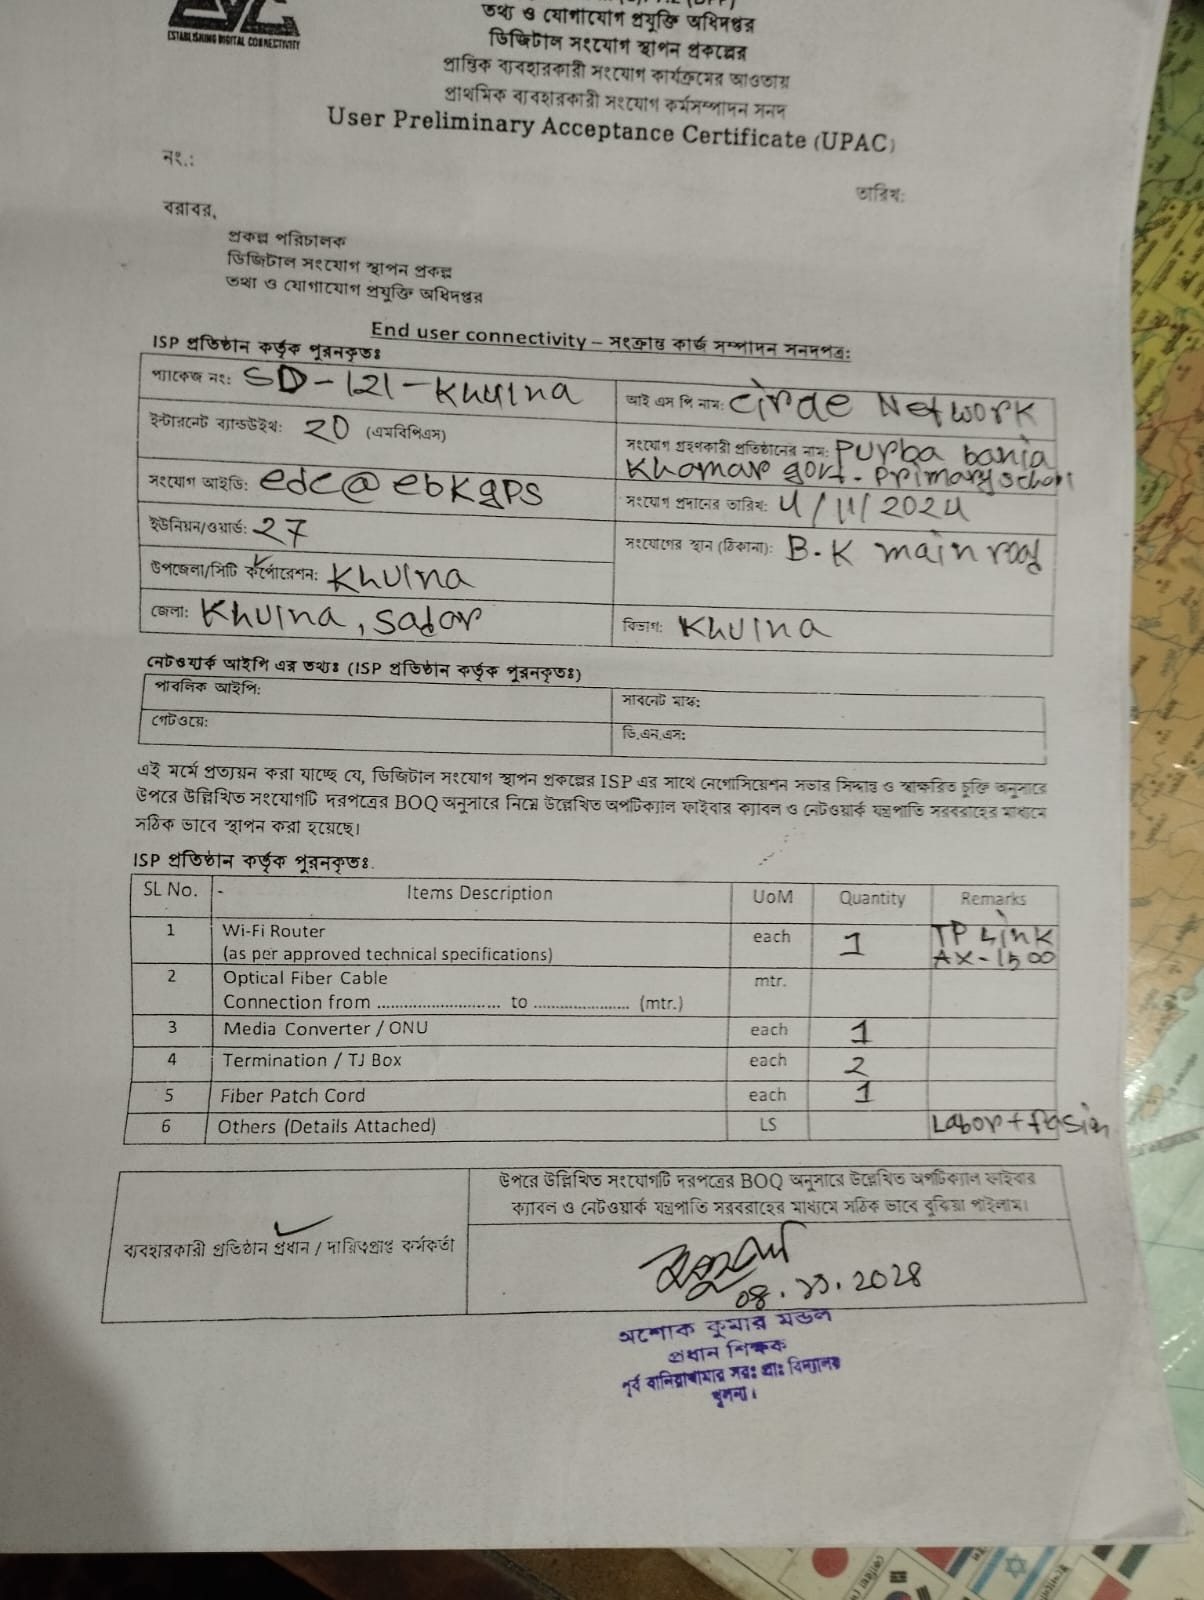 ESTABLISHING DIGITAL CONNECTIVITY
তথ্য ও যোগাযোগ প্রযুক্তি অধিদপ্তর
ডিজিটাল সংযোগ স্থাপন প্রকল্পের
প্রান্তিক ব্যবহারকারী সংযোগ কার্যক্রমের আওতায়
প্রাথমিক ব্যবহারকারী সংযোগ কর্মসম্পাদন সনদ
User Preliminary Acceptance Certificate (UPAC)
নং.:
তারিখ:
বরাবর,
প্রকল্প পরিচালক
ডিজিটাল সংযোগ স্থাপন প্রকল্প
তথ্য ও যোগাযোগ প্রযুক্তি অধিদপ্তর
End user connectivity – সংক্রান্ত কার্জ সম্পাদন সনদপত্র:
ISP প্রতিষ্ঠান কর্তৃক পুরনকৃতঃ
প্যাকেজ নং: SD-121-Khulna
আই এস পি নাম: Circle Network
ইন্টারনেট ব্যান্ডউইথ: 20 (এমবিপিএস)
সংযোগ গ্রহণকারী প্রতিষ্ঠানের নাম: Purba bania
Khamar govt. Primary school
সংযোগ আইডি: edc@ebkgps
সংযোগ প্রদানের তারিখ: 4/11/2024
ইউনিয়ন/ওয়ার্ড: 27
সংযোগের স্থান (ঠিকানা): B.K main road
উপজেলা/সিটি কর্পোরেশন: Khulna
জেলা: Khulna, Sador
বিভাগ: Khulna
নেটওয়ার্ক আইপি এর তথ্যঃ (ISP প্রতিষ্ঠান কর্তৃক পুরনকৃতঃ)
পাবলিক আইপি:
সাবনেট মাস্ক:
গেটওয়ে:
ডি.এন.এস:
এই মর্মে প্রত্যয়ন করা যাচ্ছে যে, ডিজিটাল সংযোগ স্থাপন প্রকল্পের ISP এর সাথে নেগোসিয়েশন সভার সিদ্ধান্ত ও স্বাক্ষরিত চুক্তি অনুসারে
উপরে উল্লিখিত সংযোগটি দরপত্রের BOQ অনুসারে নিম্নে উল্লেখিত অপটিক্যাল ফাইবার ক্যাবল ও নেটওয়ার্ক যন্ত্রপাতি সরবরাহের মাধ্যমে
সঠিক ভাবে স্থাপন করা হয়েছে।
ISP প্রতিষ্ঠান কর্তৃক পুরনকৃতঃ.
SL No. - Items Description UoM Quantity Remarks
1 Wi-Fi Router each 1 TP Link
(as per approved technical specifications) AX-1500
2 Optical Fiber Cable mtr.
Connection from ............................ to ...................... (mtr.)
3 Media Converter / ONU each 1
4 Termination / TJ Box each 2
5 Fiber Patch Cord each 1
6 Others (Details Attached) LS Labor +
উপরে উল্লিখিত সংযোগটি দরপত্রের BOQ অনুসারে উল্লেখিত অপটিক্যাল ফাইবার
ক্যাবল ও নেটওয়ার্ক যন্ত্রপাতি সরবরাহের মাধ্যমে সঠিক ভাবে বুঝিয়া পাইলাম।
ব্যবহারকারী প্রতিষ্ঠান প্রধান / দায়িত্বপ্রাপ্ত কর্মকর্তা
০৪.১১.২০২৪
অশোক কুমার মন্ডল
প্রধান শিক্ষক
পূর্ব বানিয়াখামার সরঃ প্রাঃ বিদ্যালয়
খুলনা।